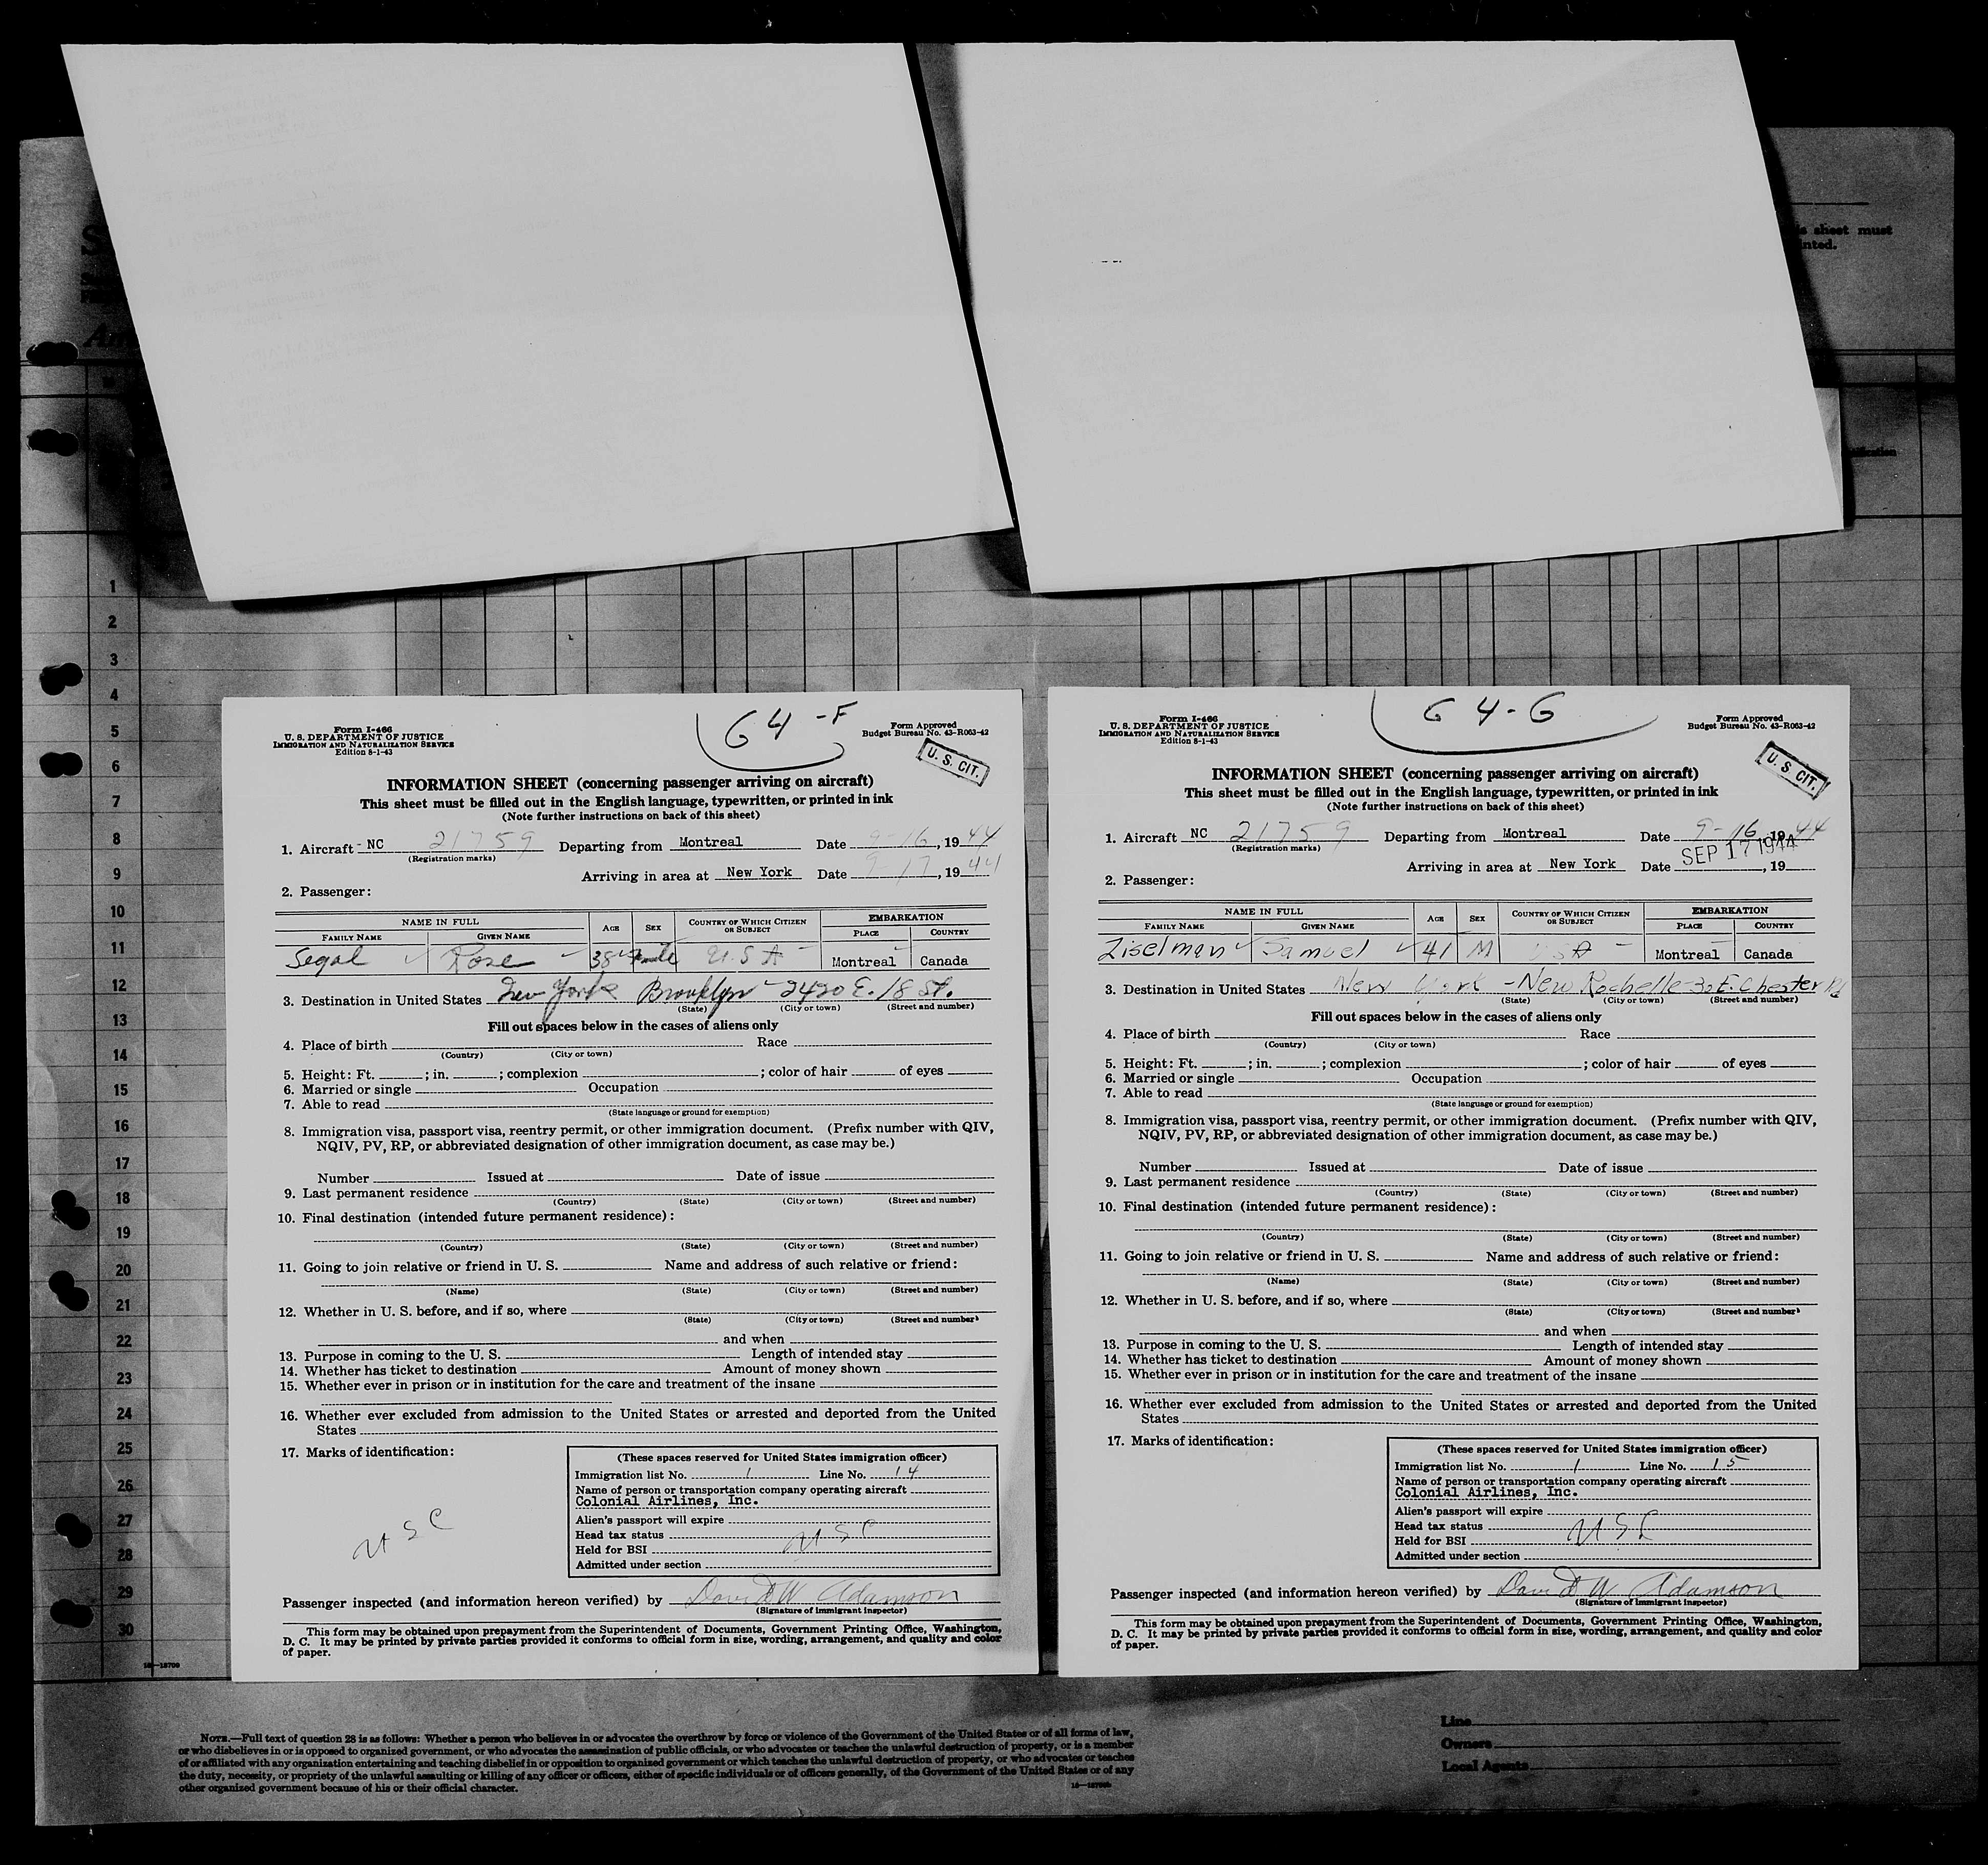 s sheet must
inted.
1
2
3
4
5
6
7
8
9
10
11
12
13
14
15
16
17
18
19
20
21
22
23
24
25
26
27
28
29
30
Form I-466
U. S. DEPARTMENT OF JUSTICE
IMMIGRATION AND NATURALIZATION SERVICE
Edition 8-1-43
64-F
Form Approved
Budget Bureau No. 43-R063-42
U. S. CIT.
INFORMATION SHEET (concerning passenger arriving on aircraft)
This sheet must be filled out in the English language, typewritten, or printed in ink
(Note further instructions on back of this sheet)
1. Aircraft NC 21759 Departing from Montreal Date 9-16, 1944
(Registration marks)
Arriving in area at New York Date 9 17, 1944
2. Passenger:
NAME IN FULL AGE SEX COUNTRY OF WHICH CITIZEN OR SUBJECT EMBARKATION
FAMILY NAME GIVEN NAME PLACE COUNTRY
Segal Rose 38 Female U.S.A Montreal Canada
3. Destination in United States New York Brooklyn - 2420 E. 18 St.
(State) (City or town) (Street and number)
Fill out spaces below in the cases of aliens only
4. Place of birth Race
(Country) (City or town)
5. Height: Ft. ; in. ; complexion ; color of hair of eyes
6. Married or single Occupation
7. Able to read
(State language or ground for exemption)
8. Immigration visa, passport visa, reentry permit, or other immigration document. (Prefix number with QIV,
NQIV, PV, RP, or abbreviated designation of other immigration document, as case may be.)
Number Issued at Date of issue
9. Last permanent residence
(Country) (State) (City or town) (Street and number)
10. Final destination (intended future permanent residence):
(Country) (State) (City or town) (Street and number)
11. Going to join relative or friend in U. S. Name and address of such relative or friend:
(Name) (State) (City or town) (Street and number)
12. Whether in U. S. before, and if so, where
(State) (City or town) (Street and number)
and when
13. Purpose in coming to the U. S. Length of intended stay
14. Whether has ticket to destination Amount of money shown
15. Whether ever in prison or in institution for the care and treatment of the insane
16. Whether ever excluded from admission to the United States or arrested and deported from the United
States
17. Marks of identification:
(These spaces reserved for United States immigration officer)
Immigration list No. 1 Line No. 14
Name of person or transportation company operating aircraft
Colonial Airlines, Inc.
Alien's passport will expire
Head tax status USC
Held for BSI
Admitted under section
USC
Passenger inspected (and information hereon verified) by David W Adamson
(Signature of immigrant inspector)
This form may be obtained upon prepayment from the Superintendent of Documents, Government Printing Office, Washington,
D. C. It may be printed by private parties provided it conforms to official form in size, wording, arrangement, and quality and color
of paper.
Form I-466
U. S. DEPARTMENT OF JUSTICE
IMMIGRATION AND NATURALIZATION SERVICE
Edition 8-1-43
64-G
Form Approved
Budget Bureau No. 43-R063-42
U. S. CIT.
INFORMATION SHEET (concerning passenger arriving on aircraft)
This sheet must be filled out in the English language, typewritten, or printed in ink
(Note further instructions on back of this sheet)
1. Aircraft NC 21759 Departing from Montreal Date 9-16, 1944
(Registration marks)
Arriving in area at New York Date SEP 17 1944, 19
2. Passenger:
NAME IN FULL AGE SEX COUNTRY OF WHICH CITIZEN OR SUBJECT EMBARKATION
FAMILY NAME GIVEN NAME PLACE COUNTRY
Ziselman Samuel 41 M USA Montreal Canada
3. Destination in United States New York - New Rochelle - 30 E. Chester Rd
(State) (City or town) (Street and number)
Fill out spaces below in the cases of aliens only
4. Place of birth Race
(Country) (City or town)
5. Height: Ft. ; in. ; complexion ; color of hair of eyes
6. Married or single Occupation
7. Able to read
(State language or ground for exemption)
8. Immigration visa, passport visa, reentry permit, or other immigration document. (Prefix number with QIV,
NQIV, PV, RP, or abbreviated designation of other immigration document, as case may be.)
Number Issued at Date of issue
9. Last permanent residence
(Country) (State) (City or town) (Street and number)
10. Final destination (intended future permanent residence):
(Country) (State) (City or town) (Street and number)
11. Going to join relative or friend in U. S. Name and address of such relative or friend:
(Name) (State) (City or town) (Street and number)
12. Whether in U. S. before, and if so, where
(State) (City or town) (Street and number)
and when
13. Purpose in coming to the U. S. Length of intended stay
14. Whether has ticket to destination Amount of money shown
15. Whether ever in prison or in institution for the care and treatment of the insane
16. Whether ever excluded from admission to the United States or arrested and deported from the United
States
17. Marks of identification:
(These spaces reserved for United States immigration officer)
Immigration list No. 1 Line No. 15
Name of person or transportation company operating aircraft
Colonial Airlines, Inc.
Alien's passport will expire
Head tax status USC
Held for BSI
Admitted under section
Passenger inspected (and information hereon verified) by David W Adamson
(Signature of immigrant inspector)
This form may be obtained upon prepayment from the Superintendent of Documents, Government Printing Office, Washington,
D. C. It may be printed by private parties provided it conforms to official form in size, wording, arrangement, and quality and color
of paper.
NOTE.—Full text of question 28 is as follows: Whether a person who believes in or advocates the overthrow by force or violence of the Government of the United States or of all forms of law,
or who disbelieves in or is opposed to organized government, or who advocates the assassination of public officials, or who advocates or teaches the unlawful destruction of property, or is a member
of or affiliated with any organization entertaining and teaching disbelief in or opposition to organized government or which teaches the unlawful destruction of property, or who advocates or teaches
the duty, necessity, or propriety of the unlawful assaulting or killing of any officer or officers, either of specific individuals or of officers generally, of the Government of the United States or of any
other organized government because of his or their official character.
Line
Owners
Local Agents